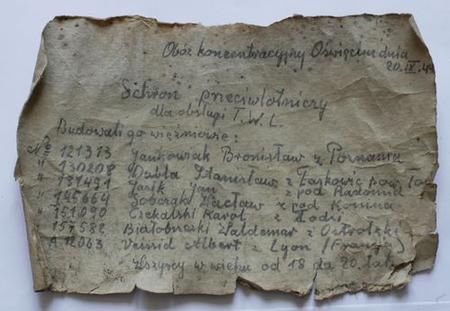 Obóz koncentracyjny Oświęcim dnia
20.IX.44
Schron przeciwlotniczy
dla obsługi T.W.L.
Budowali go więźniowie:
No 121313 Jankowiak Bronisław z Poznania
" 130208 Dubla Stanisław z Łaskowic pow.
" 131491 Jasik Jan z pod Radomia
" 145664 Sobczak Wacław z pod Konina
" 151090 Czekalski Karol z Łodzi
" 157582 Białobrzeski Waldemar z Ostrołęki
A 12063 Veissid Albert z Lyon (Francja)
Wszyscy w wieku od 18 do 20 lat